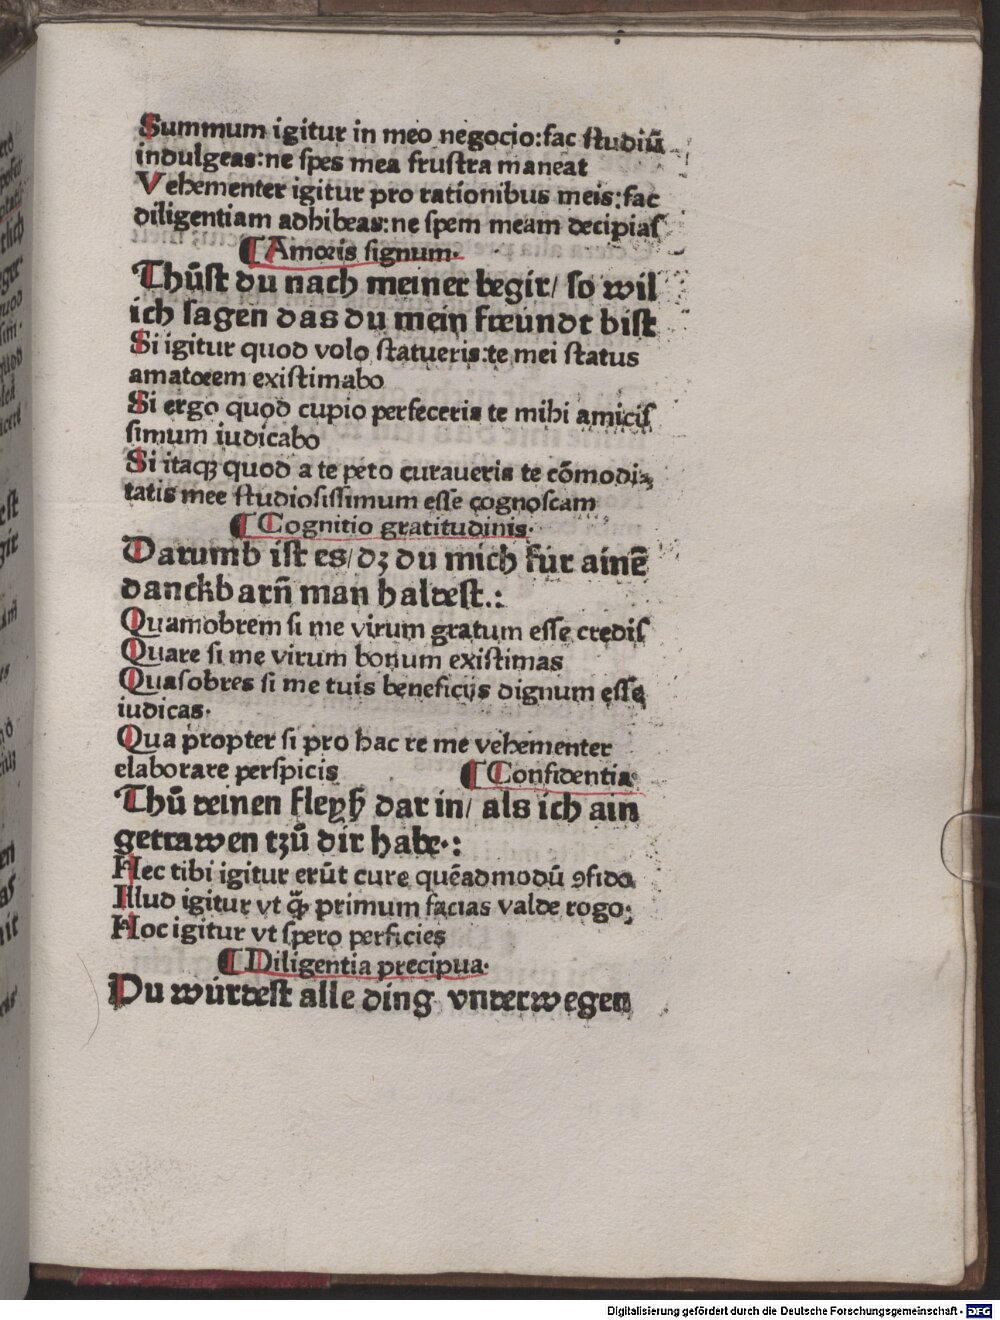 Summum igitur in meo negocio:fac studiū
indulgeas:ne spes mea frustra maneat
Vehementer igitur pro rationibus meis:fac
diligentiam adhibeas:ne spem meam decipias
¶ Amoris signum·
Thůst du nach meiner begir/ so wil
ich sagen das du mein freündt bist
Si igitur quod volo statueris:te mei status
amatorem existimabo
Si ergo quod cupio perfeceris te mihi amicis
simum iudicabo
Si itaqꝫ quod a te peto curaueris te cōmodi⸗
tatis mee studiosissimum esse cognoscam
¶ Cognitio gratitudinis·
Darumb ist es/ dꝫ du mich für ainē
danckbarn̄ man haltest.:
Quamobrem si me virum gratum esse credis
Quare si me virum bonum existimas
Quasobres si me tuis beneficijs dignum esse
iudicas·
Qua propter si pro hac re me vehementer
elaborare perspicis ¶ Confidentia·
Thů deinen fleyß dar in/ als ich ain
getrawen tzů dir habe·:
Hec tibi igitur erūt cure quēadmodū ꝯfido
Illud igitur vt primum facias valde rogo:
Hoc igitur vt spero perficies
¶ Diligentia precipua·
Du würdest alle ding vnderwegen
Digitalisierung gefördert durch die Deutsche Forschungsgemeinschaft - DFG